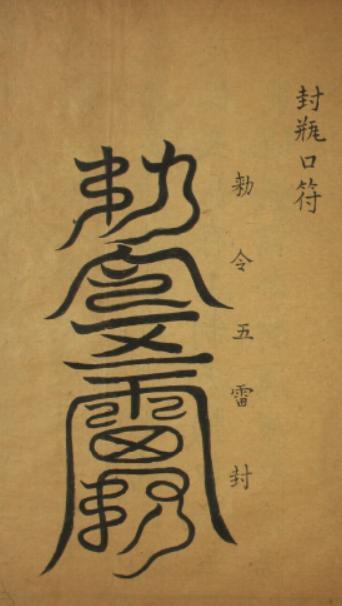 封瓶口符
勅令五雷封